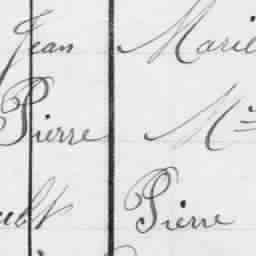 Jean Marie
Pierre M
Pierre